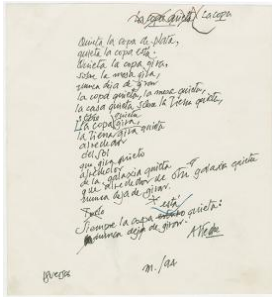 La copa quieta (La copa
Quieta la copa de plata,
quieta la copa está.
Quieta la copa gira,
sobre la mesa gira,
nunca deja de girar.
la copa quieta, la mesa quieta,
la casa quieta sobre la tierra quieta,
sobre quieta
La copa gira,
la tierra gira quieta
alrededor
del sol
que gira quieto
alrededor
de la galaxia quieta
que alrededor de otra galaxia quieta
nunca deja de girar.
está
Siempre la copa quieta:
nunca deja de girar.